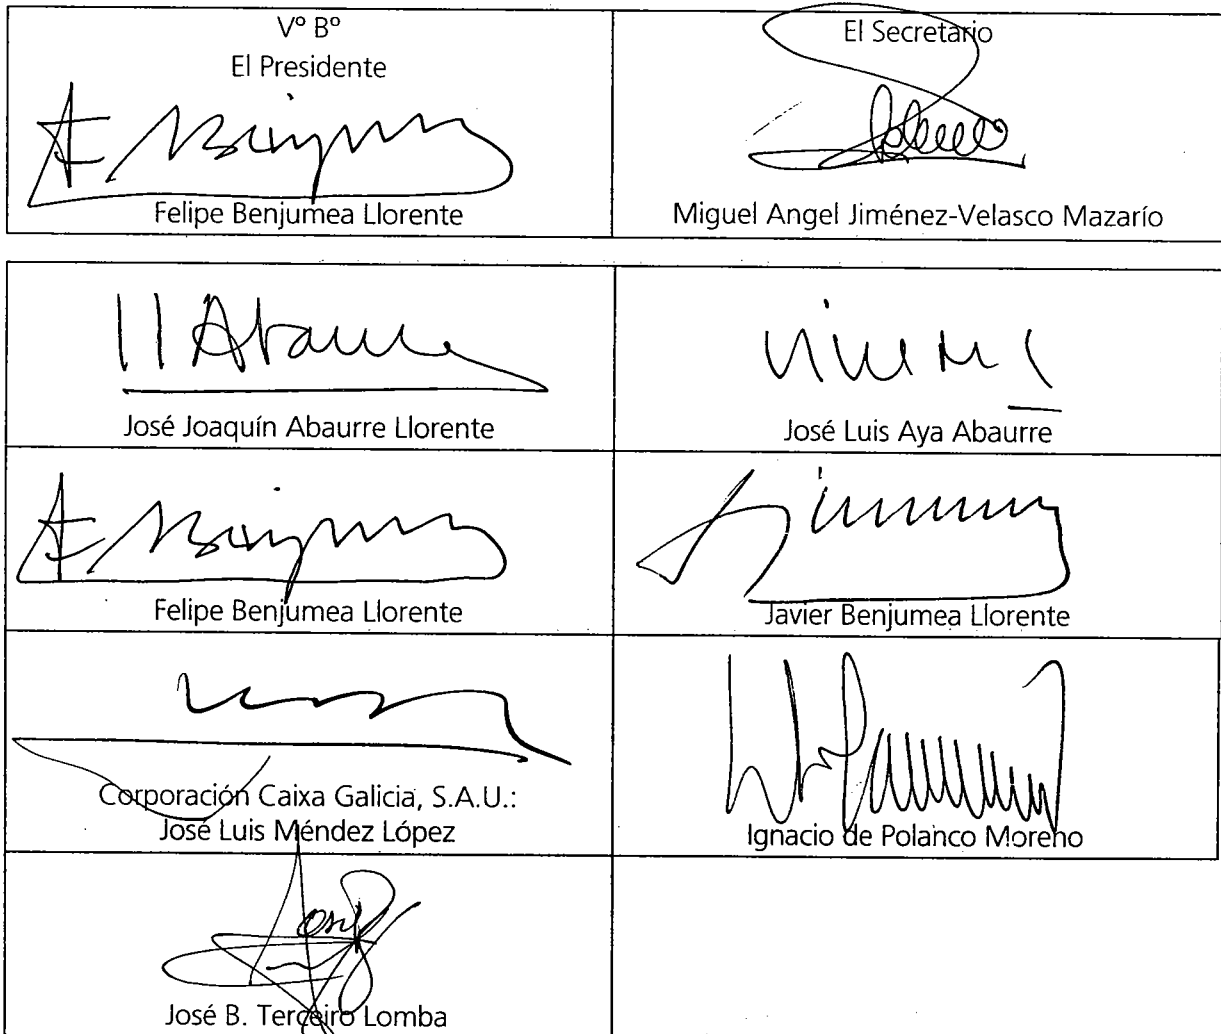 Vº Bº
El Presidente
Felipe Benjumea Llorente
El Secretario
Miguel Angel Jiménez-Velasco Mazarío
José Joaquín Abaurre Llorente
José Luis Aya Abaurre
Felipe Benjumea Llorente
Javier Benjumea Llorente
Corporación Caixa Galicia, S.A.U.:
José Luis Méndez López
Ignacio de Polanco Moreno
José B. Terceiro Lomba